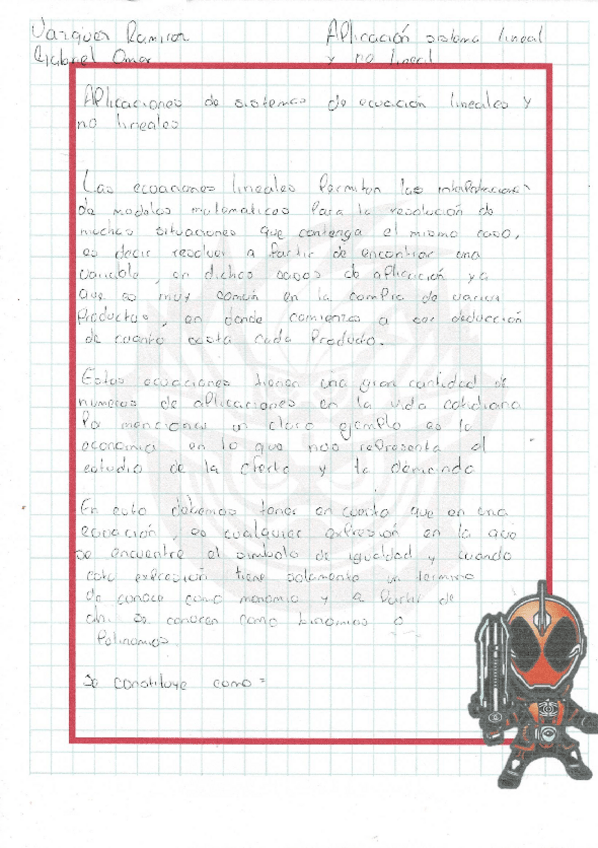 Vazquez Ramirez
Gabriel Omar
Aplicación sistema lineal
y no lineal
Aplicaciones de sistemas de ecuación lineales y
no lineales
Las ecuaciones lineales Permiten las
de modelos matematicos Para la resolución de
muchas situaciones que contenga el mismo caso,
es decir resolver a Partir de encontrar una
variable, en dichos casos de aplicación ya
que es muy común en la compra de varios
Productos, en donde comienza a ser deducción
de cuanto costa cada Producto.
Estas ecuaciones tienen una gran cantidad de
numeros de aplicaciones en la vida cotidiana
Po mencionar un claro ejemplo es la
economia en lo que nos representa el
estudio de la oferta y la demanda
En esto debemos tener en cuenta que en una
ecuación, es cualquier expresión en la que
se encuentre el simbolo de igualdad y cuando
esta expresión tiene solamente un termino
de conoce como monomio y a Partir de
ahi se conocen como binomios o
Polinomios
Se constituye como: